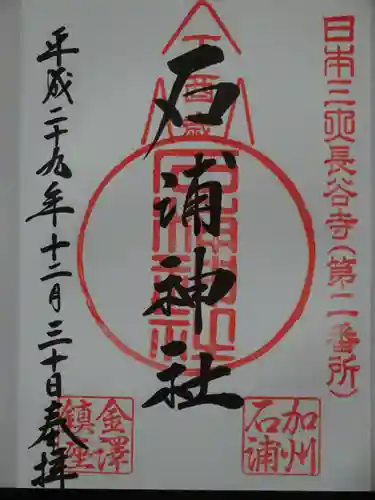 日本三大長谷寺(第二番所)
丁酉歳
石浦神社
平成二十九年十二月三十日奉拝
加州
石浦
金澤
鎮座